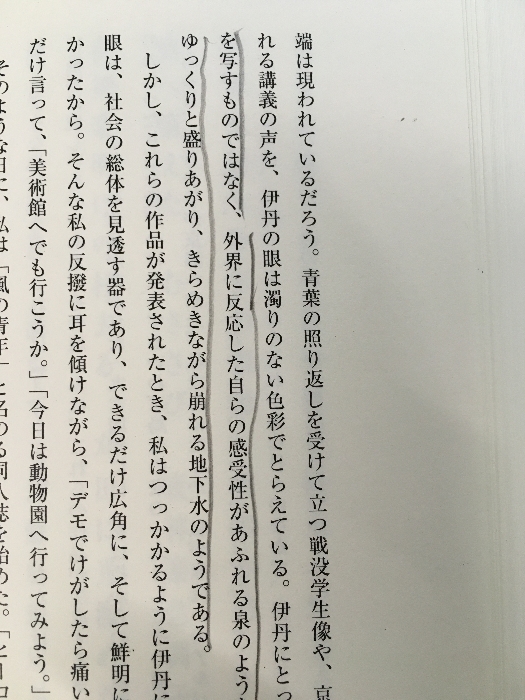 端は現われているだろう。青葉の照り返しを受けて立つ戦没学生像や、京
れる講義の声を、伊丹の眼は濁りのない色彩でとらえている。伊丹にとっ
を写すものではなく、外界に反応した自らの感受性があふれる泉のよう
ゆっくりと盛りあがり、きらめきながら崩れる地下水のようである。
しかし、これらの作品が発表されたとき、私はつっかかるように伊丹に
眼は、社会の総体を見透す器であり、できるだけ広角に、そして鮮明に
かったから。そんな私の反撥に耳を傾けながら、「デモでけがしたら痛い
だけ言って、「美術館へでも行こうか。」「今日は動物園へ行ってみよう。」
そのような日に、私は「風の青年」と名のる同人誌を始めた。「ヒーロ